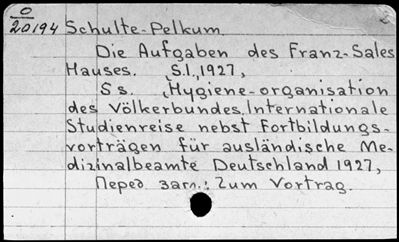 O
20194 Schulte-Pelkum.
Die Aufgaben des Franz-Sales
Hauses. S.l., 1927,
S s. „Hygiene-organisation
des Völkerbundes, Internationale
Studienreise nebst Fortbildungs-
vorträgen für ausländische Me-
dizinalbeamte Deutschland 1927,
Перед загл.: Zum Vortrag.